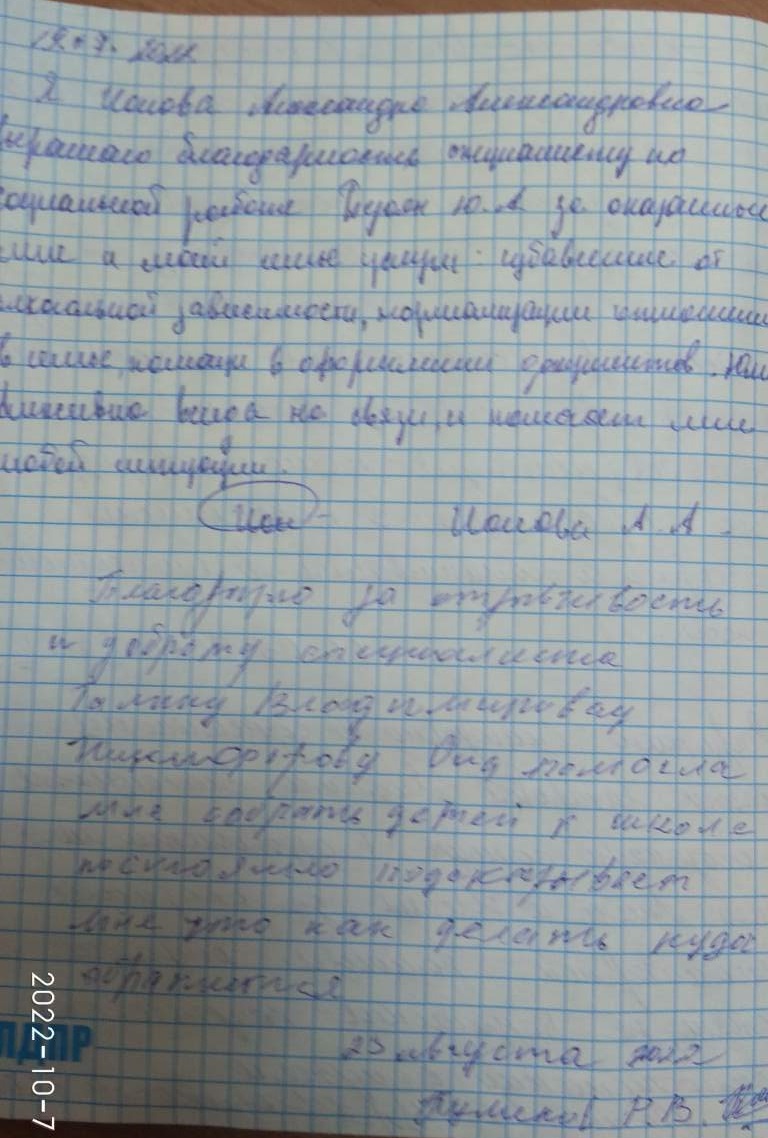 2022
Я Ионова Александра Александровна
выражаю благодарность специалисту по
социальной работе Ю. А за оказанные
мне и моей семье услуги: избавление от
алкогольной зависимости, нормализации отношений
в семье, помощи в оформлении документов.
на связи, и помогает мне
любой ситуации.
Ион Ионова А А
Благодарю за отзывчивость
и доброту специалиста
Галину Владимировну
Никифорову Она помогла
мне собрать детей к школе
постоянно подсказывает
мне что как делать куда
обратится
23 августа 2022
Р.В.
ЛДПР
2022-10-7